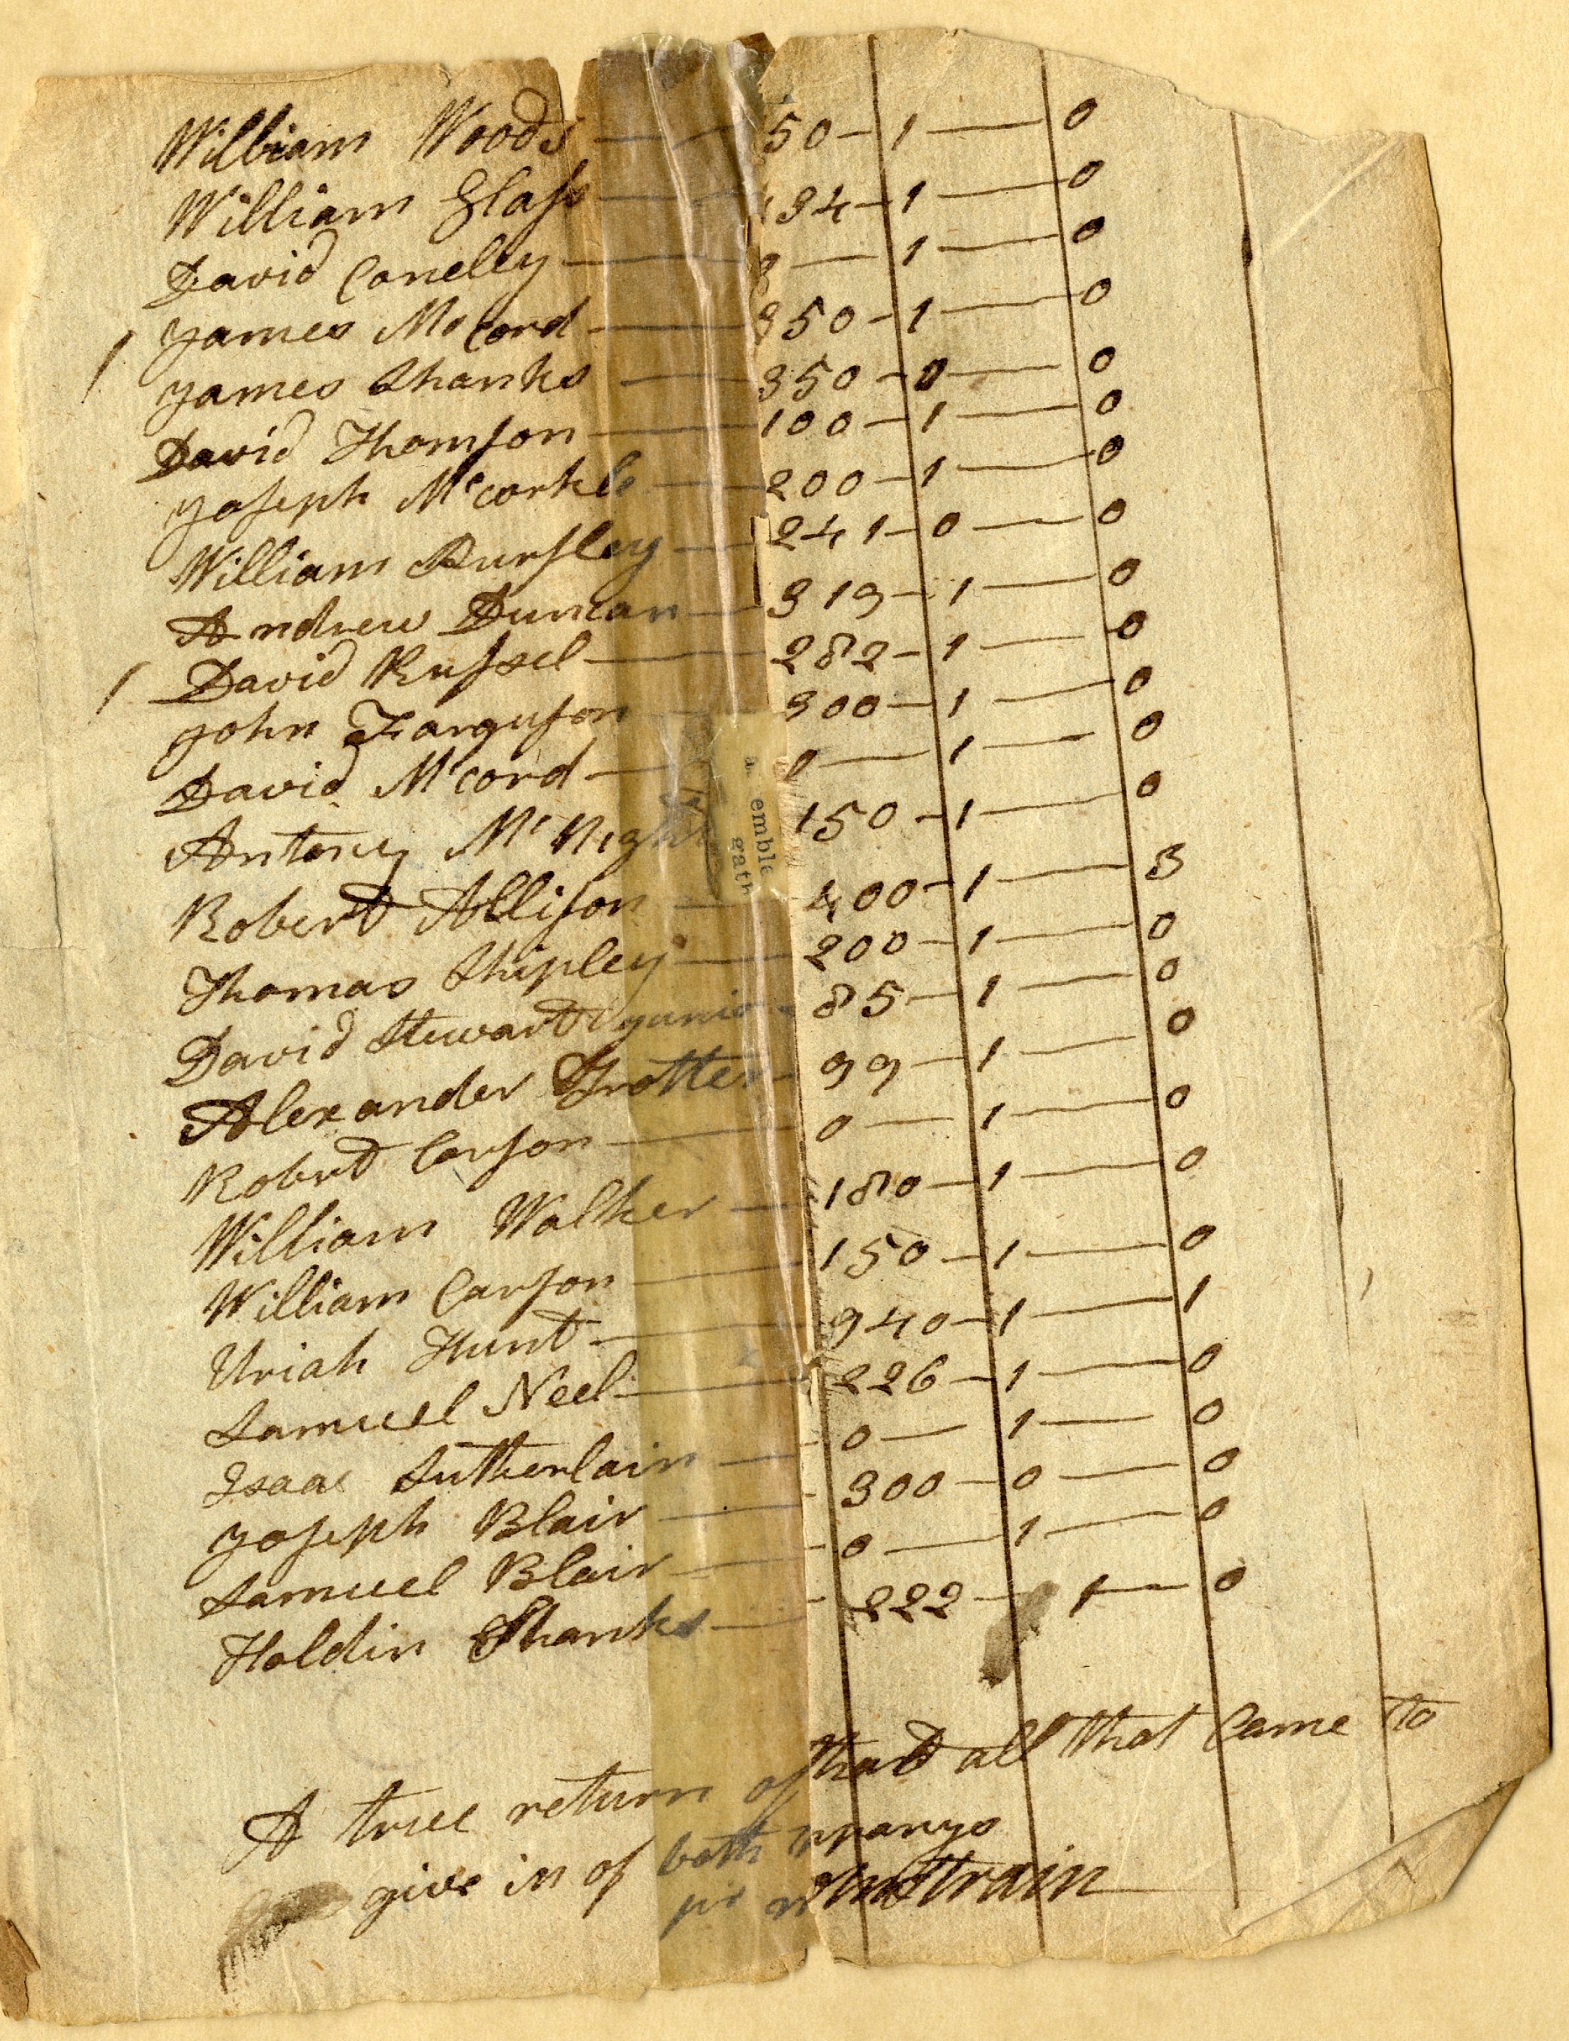 William Woods — 50 — 1 — 0
William Glass — 94 — 1 — 0
David Coneley — 1 — 0
James McCord — 350 — 1 — 0
/ James Shanks — 350 — 0 — 0
David Thomson — 100 — 1 — 0
Joseph Mccorkle — 200 — 1 — 0
William Pursley — 241 — 0 — 0
Andrew Duncan — 319 — 1 — 0
/ David Russel — 282 — 1 — 0
John Farguson — 300 — 1 — 0
David Mccord — 0 — 1 — 0
Antony McNight — 150 — 1 — 0
emble
gath
Robert Allison — 400 — 1 — 3
Thomas Shipley — 200 — 1 — 0
David Stewart junior — 85 — 1 — 0
Alexander Trotter — 99 — 1 — 0
Robert Carson — 0 — 1 — 0
William Walker — 180 — 1 — 0
William Carson — 150 — 1 — 0
Uriah Hunt — 940 — 1 — 1
Samuel Neel — 226 — 1 — 0
Isaac Sutherlain — 0 — 1 — 0
Joseph Blair — 300 — 0 — 0
Samuel Blair — 0 — 1 — 0
Holdin Shanks — 222 — 1 — 0
A true return of all that Came to
give in of both